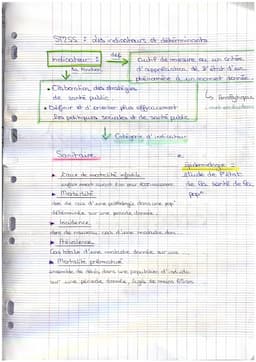 ST2SS : des indicateurs et déterminants
Indicateur :
def
Outil de mesure ou un critère
d'appréciation, de l'état d'un
phénomène à un moment donné.
• Elaboration des stratégies
de santé publique
• Définir et d'orienter plus efficacement
les politiques sociales et de santé publique
Catégorie d'indicateur
Sanitaire
Epidémiologie =
étude de l'état
de la santé de la
pop°
▸ Taux de mortalité infantile
▸ Morbidité
cas d'une pathologie dans une pop°
déterminée sur une période donnée.
▸ Incidence
nbre de nouveau cas d'une maladie
▸ Prévalence
Cas totale d'une maladie donnée sur une
▸ Mortalité prématurée
ensemble de décès dans une population d'individu
sur une période donnée, âgés de moins 65ans